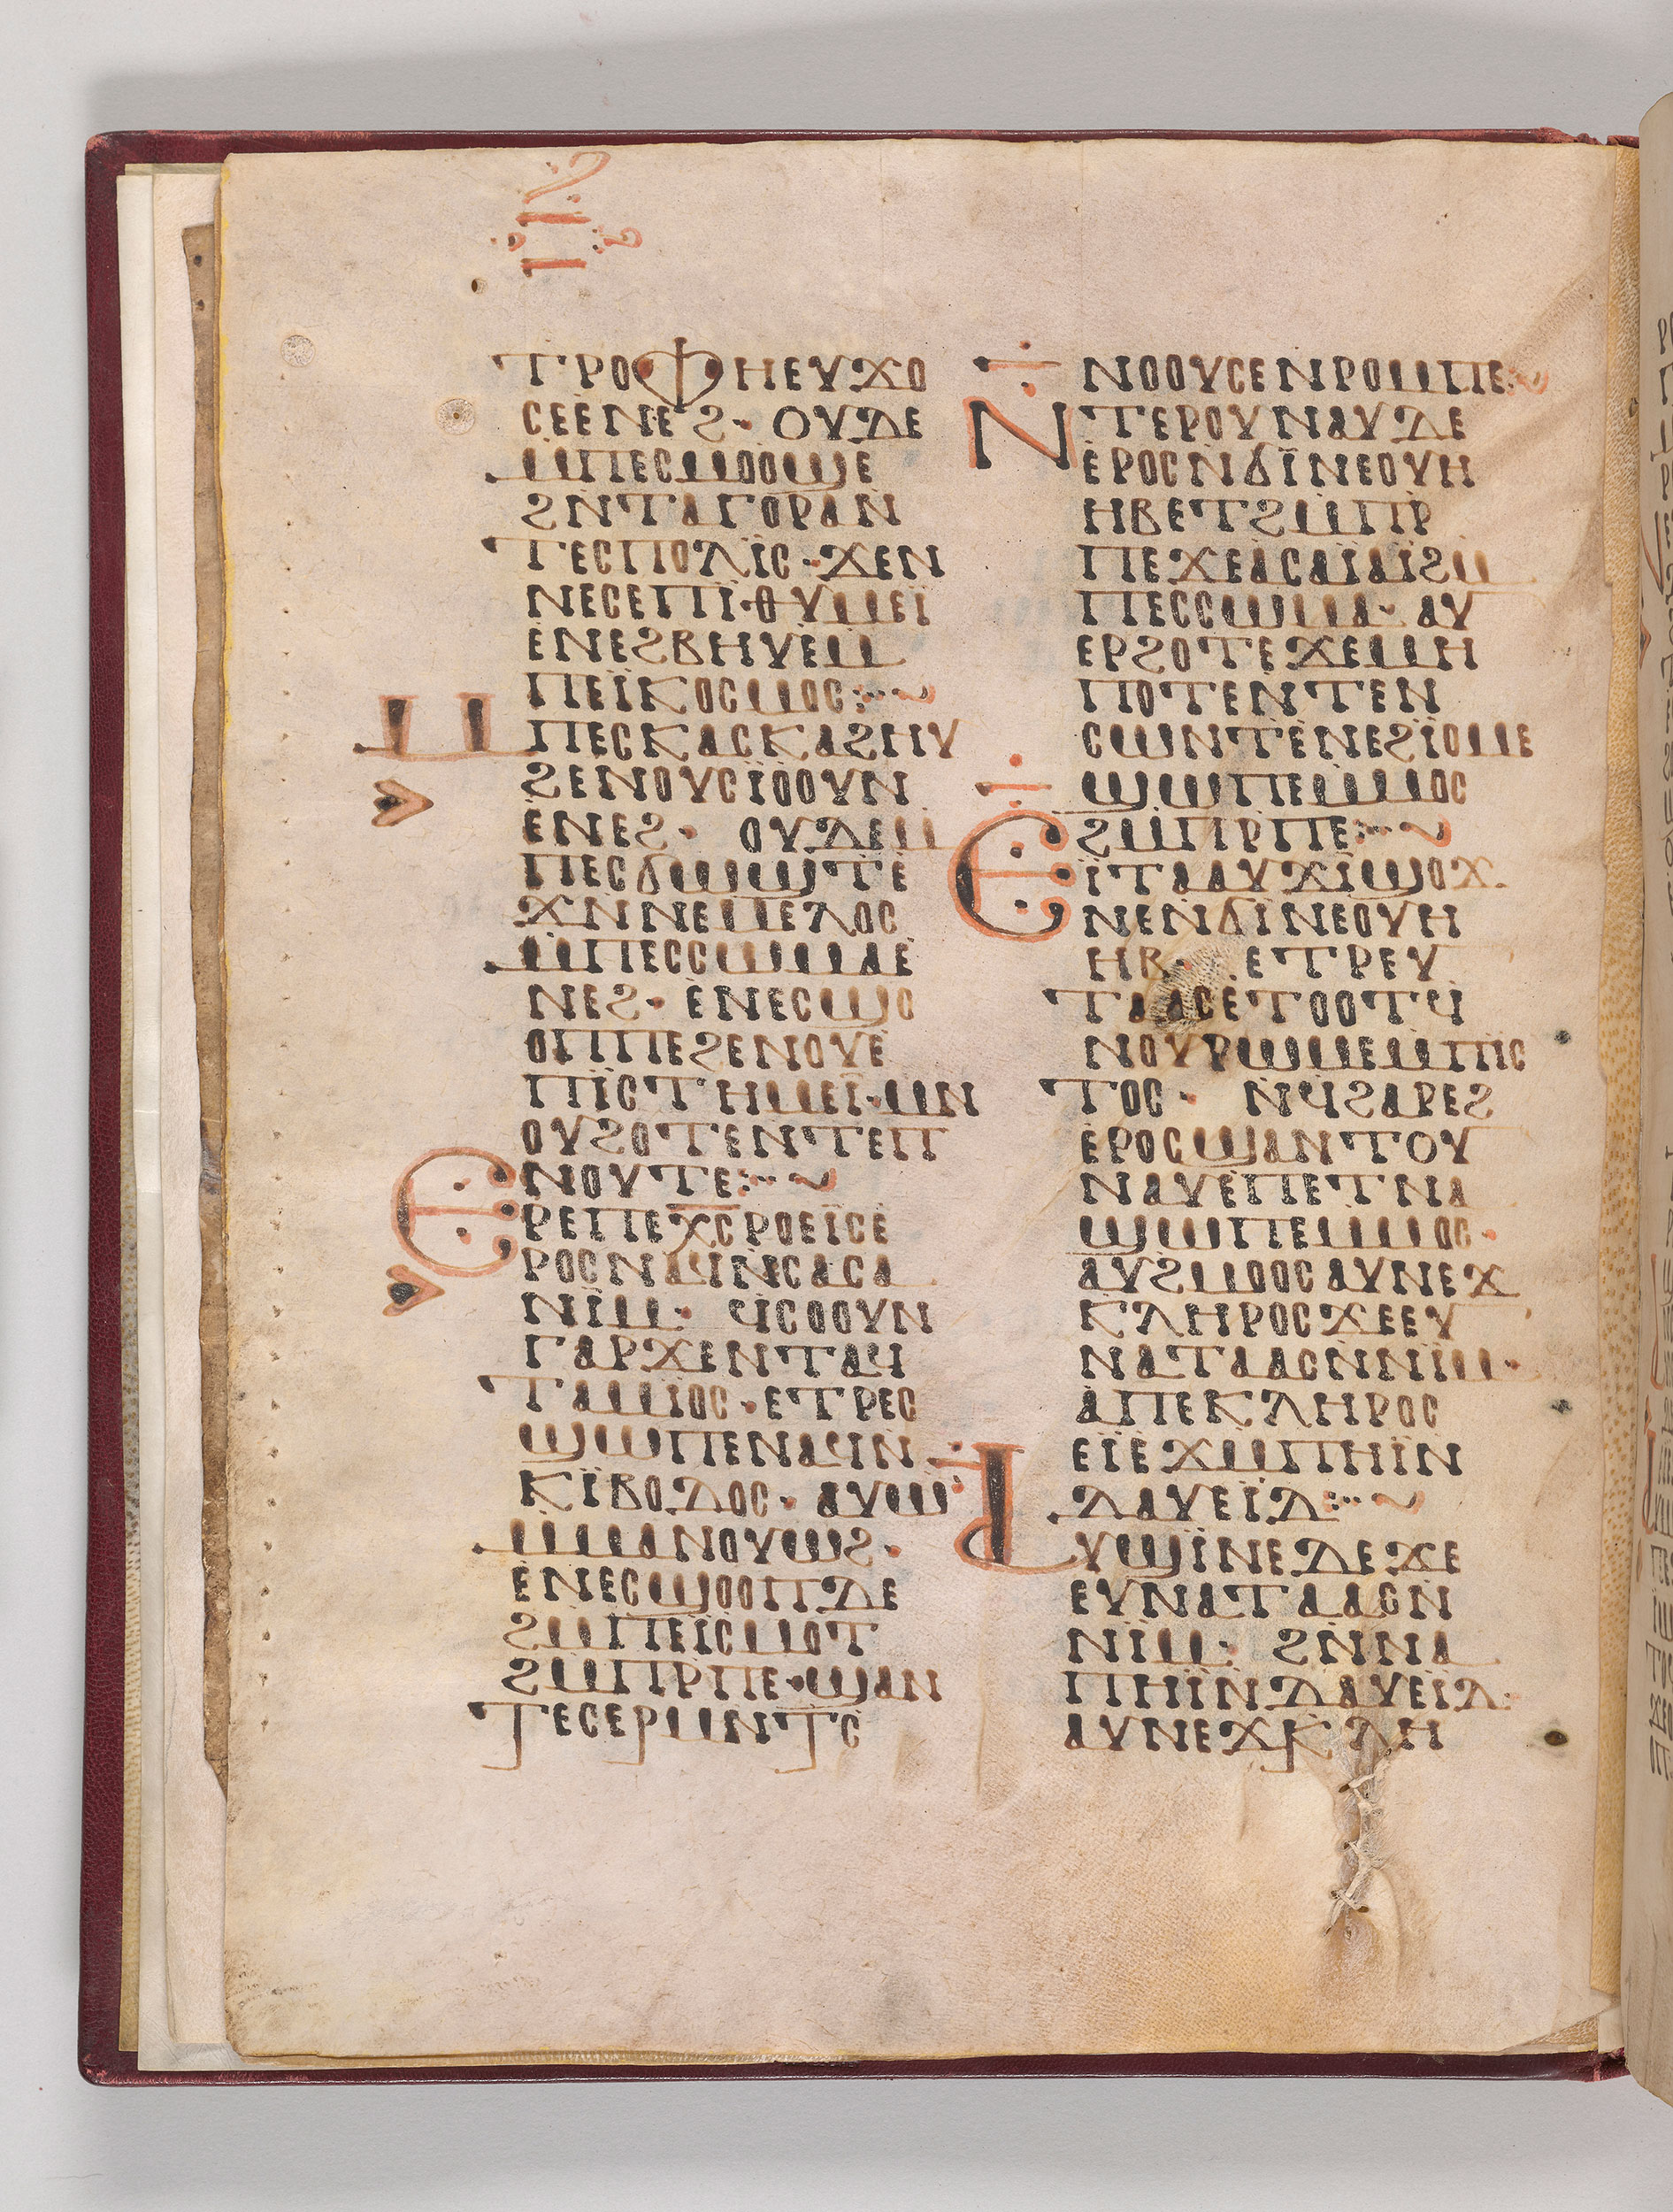 ⲧⲣⲟⲫⲏⲉⲩϫⲟ
ⲥⲉⲉⲛⲉϩ· ⲟⲩⲇⲉ
ⲙⲡⲉⲥⲙⲟⲟϣⲉ
ϩⲛⲧⲁⲅⲟⲣⲁⲛ
ⲧⲉⲥⲡⲟⲗⲓⲥ· ϫⲉⲛ
ⲛⲉⲥⲉⲡⲓ·ⲑⲩⲙⲉⲓ
ⲉⲛⲉϩⲃⲏⲩⲉⲙ
ⲡⲉⲓⲕⲟⲥⲙⲟⲥ:··~
ⲙⲡⲉⲥⲕⲁⲥⲕⲁϩⲏⲩ
ϩⲉⲛⲟⲩⲥⲓⲟⲟⲩⲛ
ⲉⲛⲉϩ· ⲟⲩⲇⲉⲙ
ⲡⲉⲥϭⲱϣⲧⲉ
ϫⲛⲛⲉⲙⲉⲗⲟⲥ
ⲙⲡⲉⲥⲥⲱⲙⲁⲉ
ⲛⲉϩ· ⲉⲛⲉⲥϣⲟ
ⲟⲡⲡⲉϩⲉⲛⲟⲩⲉ
ⲡⲓⲥⲧⲏⲙⲉⲓ·ⲙⲛ
ⲟⲩϩⲟⲧⲉⲛⲧⲉⲡ
ⲛⲟⲩⲧⲉ:··~
ⲉⲣⲉⲡⲉⲭ̅ⲥ̅ⲣⲟⲉⲓⲥⲉ
ⲣⲟⲥⲛⲁϥⲓⲛⲥⲁⲥⲁ
ⲛⲓⲙ· ϥⲓⲥⲟⲟⲩⲛ
ⲅⲁⲣϫⲉⲛⲧⲁϥ
ⲧⲁⲙⲓⲟⲥ·ⲉⲧⲣⲉⲥ
ϣⲱⲡⲉⲛⲁϥⲓⲛ
ⲕⲓⲃⲟⲇⲟⲥ· ⲁⲩⲱ
ⲙⲙⲁⲛⲟⲩⲱϩ·
ⲉⲛⲉⲥϣⲟⲟⲡⲇⲉ
ϩⲙⲡⲉⲓⲥⲙⲟⲧ
ϩⲙⲡⲣⲡⲉ·ϣⲁⲛ
ⲧⲉⲥⲉⲣⲙⲛⲧⲥ
ⲛⲟⲟⲩⲥⲉⲛⲣⲟⲙⲡⲉ:~
ⲛⲧⲉⲣⲟⲩⲛⲁⲩⲇⲉ
ⲉⲣⲟⲥⲛϭⲓⲛⲉⲟⲩⲏ
ⲏⲃⲉⲧϩⲙⲡⲣ
ⲡⲉϫⲉⲁⲥⲁⲓⲁⲓϩⲙ
ⲡⲉⲥⲥⲱⲙⲁ· ⲁⲩ
ⲉⲣϩⲟⲧⲉϫⲉⲙⲏ
ⲡⲟⲧⲉⲛⲧⲉⲛ
ⲥⲱⲛⲧⲉⲛⲉϩⲓⲟⲙⲉ
ϣⲱⲡⲉⲙⲙⲟⲥ
ϩⲙⲡⲣⲡⲉ:··~
ⲉⲓⲧⲁⲁⲩϫⲓϣⲟϫ
ⲛⲉⲛϭⲓⲛⲉⲟⲩⲏ
ⲏⲃ· ⲉⲧⲣⲉⲩ
ⲧⲁⲁⲥⲉⲧⲟⲟⲧϥ
ⲛⲟⲩⲣⲱⲙⲉⲙⲡⲓⲥ
ⲧⲟⲥ· ⲛϥϩⲁⲣⲉϩ
ⲉⲣⲟⲥϣⲁⲛⲧⲟⲩ
ⲛⲁⲩⲉⲡⲉⲧⲛⲁ
ϣⲱⲡⲉⲙⲙⲟⲥ·
ⲁⲩϩⲙⲟⲟⲥⲁⲩⲛⲉϫ
ⲕⲗⲏⲣⲟⲥϫⲉⲉⲩ
ⲛⲁⲧⲁⲁⲥⲛⲛⲓⲙ·
ⲁⲡⲉⲕⲗⲏⲣⲟⲥ
ⲉⲓⲉϫⲙⲡⲏⲓⲛ
ⲇⲁⲩⲉⲓⲇ:··~
ⲁⲩϣⲓⲛⲉⲇⲉϫⲉ
ⲉⲩⲛⲁⲧⲁⲁⲥⲛ
ⲛⲓⲙ· ϩⲛⲛⲁ
ⲡⲏⲓⲛⲇⲁⲩⲉⲓⲇ·
ⲁⲩⲛⲉϫⲕⲗⲏ